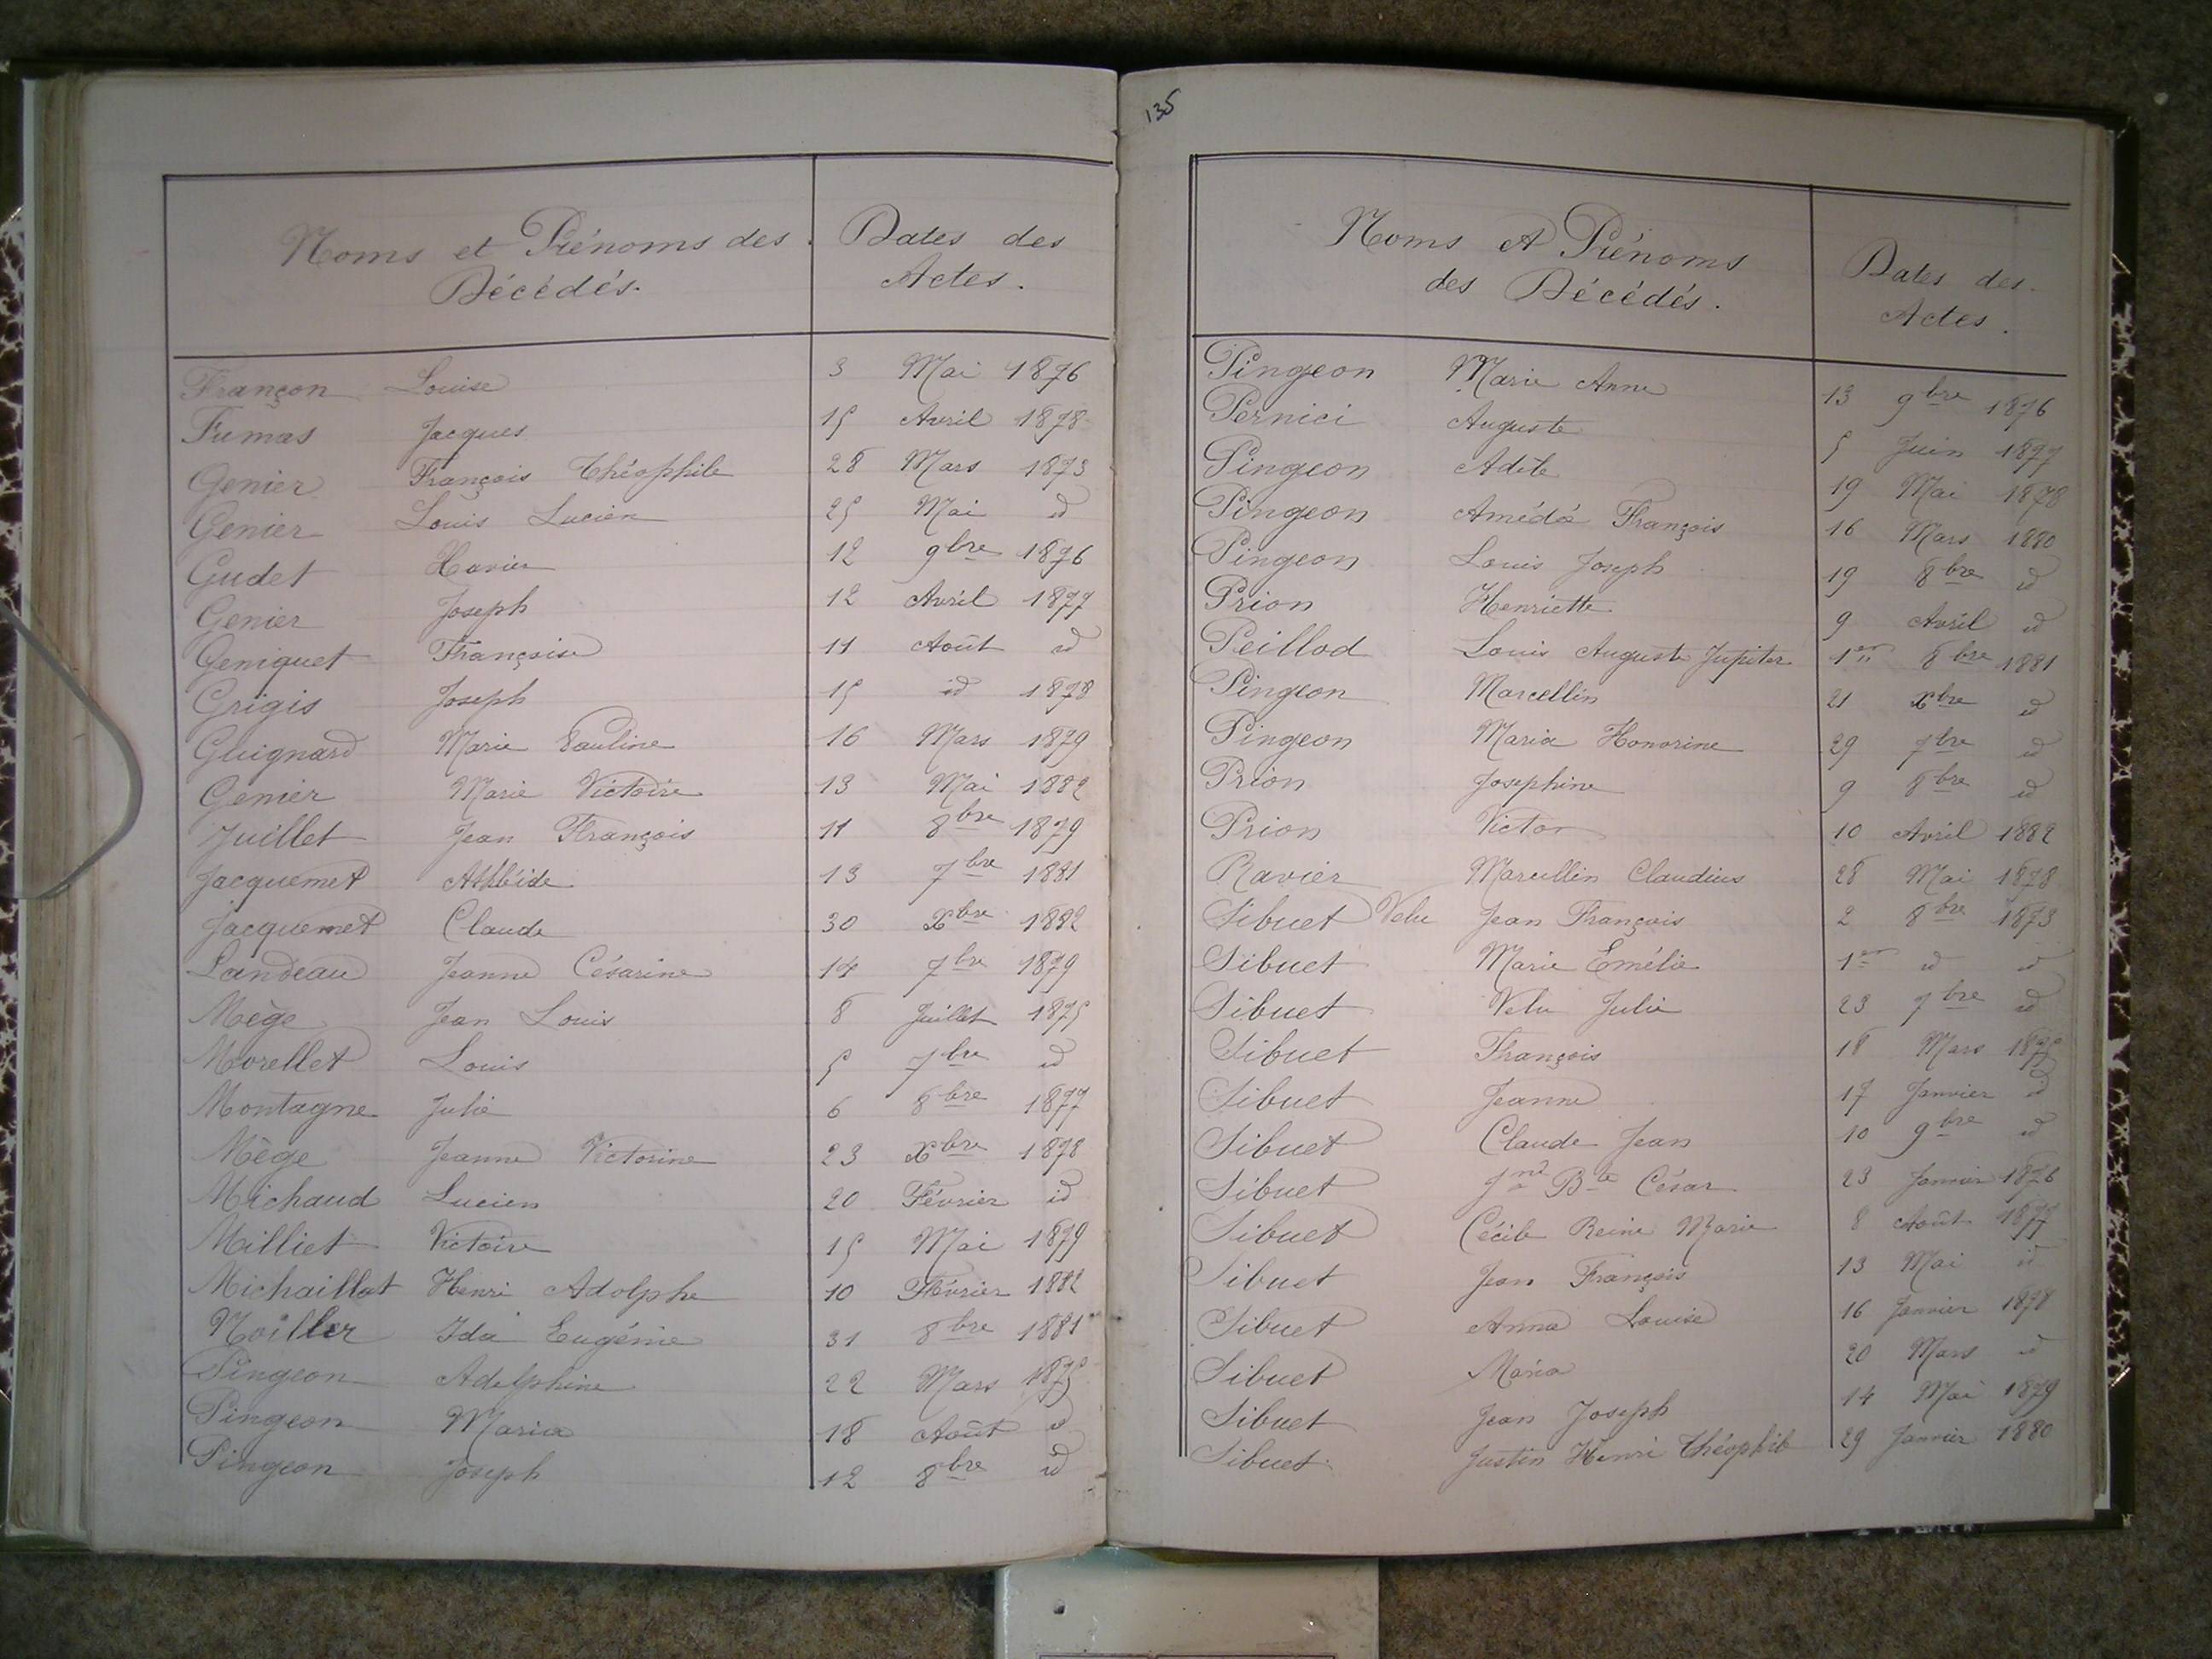 Noms et Prénoms des Décédés.
Dates des Actes.
Françon Louise 3 Mai 1876
Fumas Jacques 15 Avril 1878
Genier François Théophile 28 Mars 1873
Genier Louis Lucien 25 Mai id
Gudet Xavier 12 9bre 1876
Genier Joseph 12 Avril 1877
Geniquet Françoise 11 Août id
Grigis Joseph 15 id 1878
Guignard Marie Pauline 16 Mars 1879
Genier Marie Victoire 13 Mai 1882
Juillet Jean François 11 8bre 1879
Jacquemet 13 7bre 1881
Jacquemet Claude 30 Xbre 1882
Landeau Jeanne Césarine 14 7bre 1879
Mège Jean Louis 8 Juillet 1875
Morellet Louis 5 7bre id
Montagne Julie 6 8bre 1877
Mège Jeanne Victorine 23 Xbre 1878
Michaud Lucien 20 Février id
Milliet Victoire 15 Mai 1879
Michaillat Henri Adolphe 10 Février 1882
Noiller Ida Eugénie 31 8bre 1881
Pingeon Adelphine 22 Mars 1875
Pingeon Maria 18 Août id
Pingeon Joseph 12 8bre id
135
Noms et Prénoms des Décédés.
Dates des Actes.
Pingeon Marie Anne 13 9bre 1876
Pernici Auguste 5 Juin 1877
Pingeon Adèle 19 Mai 1878
Pingeon Amédé François 16 Mars 1880
Pingeon Louis Joseph 19 8bre id
Prion Henriette 9 Avril id
Peillod Louis Auguste Jupiter 1er 8bre 1881
Pingeon Marcellin 21 Xbre id
Pingeon Maria Honorine 29 7bre id
Prion Josephine 9 8bre id
Prion Victor 10 Avril 1882
Ravier Marcellin Claudius 28 Mai 1878
Sibuet Velu Jean François 2 8bre 1873
Sibuet Marie Emélie 1er id id
Sibuet Velu Julie 23 7bre id
Sibuet François 18 Mars 1875
Sibuet Jeanne 17 Janvier id
Sibuet Claude Jean 10 9bre id
Sibuet Jn Bte César 23 Janvier 1876
Sibuet Cécile Reine Marie 8 Août 1877
Sibuet Jean François 13 Mai id
Sibuet Anna Louise 16 Janvier 1878
Sibuet Maria 20 Mars id
Sibuet Jean Joseph 14 Mai 1879
Sibuet Justin Henri Théophile 29 Janvier 1880